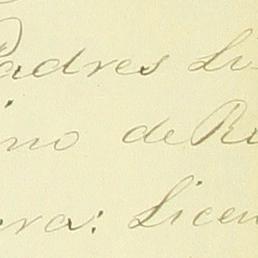 Padres Li
ino de Ri
era: Licen